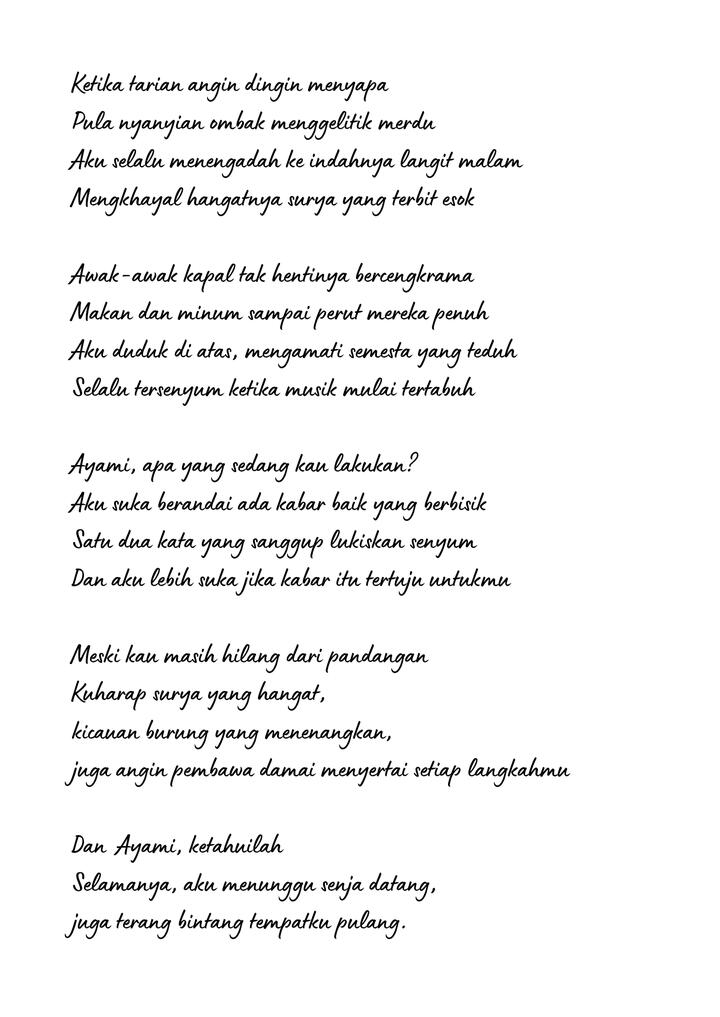 Ketika tarian angin dingin menyapa
Pula nyanyian ombak menggelitik merdu
Aku selalu menengadah ke indahnya langit malam
Mengkhayal hangatnya surya yang terbit esok
Awak-awak kapal tak hentinya bercengkrama
Makan dan minum sampai perut mereka penuh
Aku duduk di atas, mengamati semesta yang teduh
Selalu tersenyum ketika musik mulai tertabuh
Ayami, apa yang sedang kau lakukan?
Aku suka berandai ada kabar baik yang berbisik
Satu dua kata yang sanggup lukiskan senyum
Dan aku lebih suka jika kabar itu tertuju untukmu
Meski kau masih hilang dari pandangan
Kuharap surya yang hangat,
kicauan burung yang menenangkan,
juga angin pembawa damai menyertai setiap langkahmu
Dan Ayami, ketahuilah
Selamanya, aku menunggu senja datang,
juga terang bintang tempatku pulang.